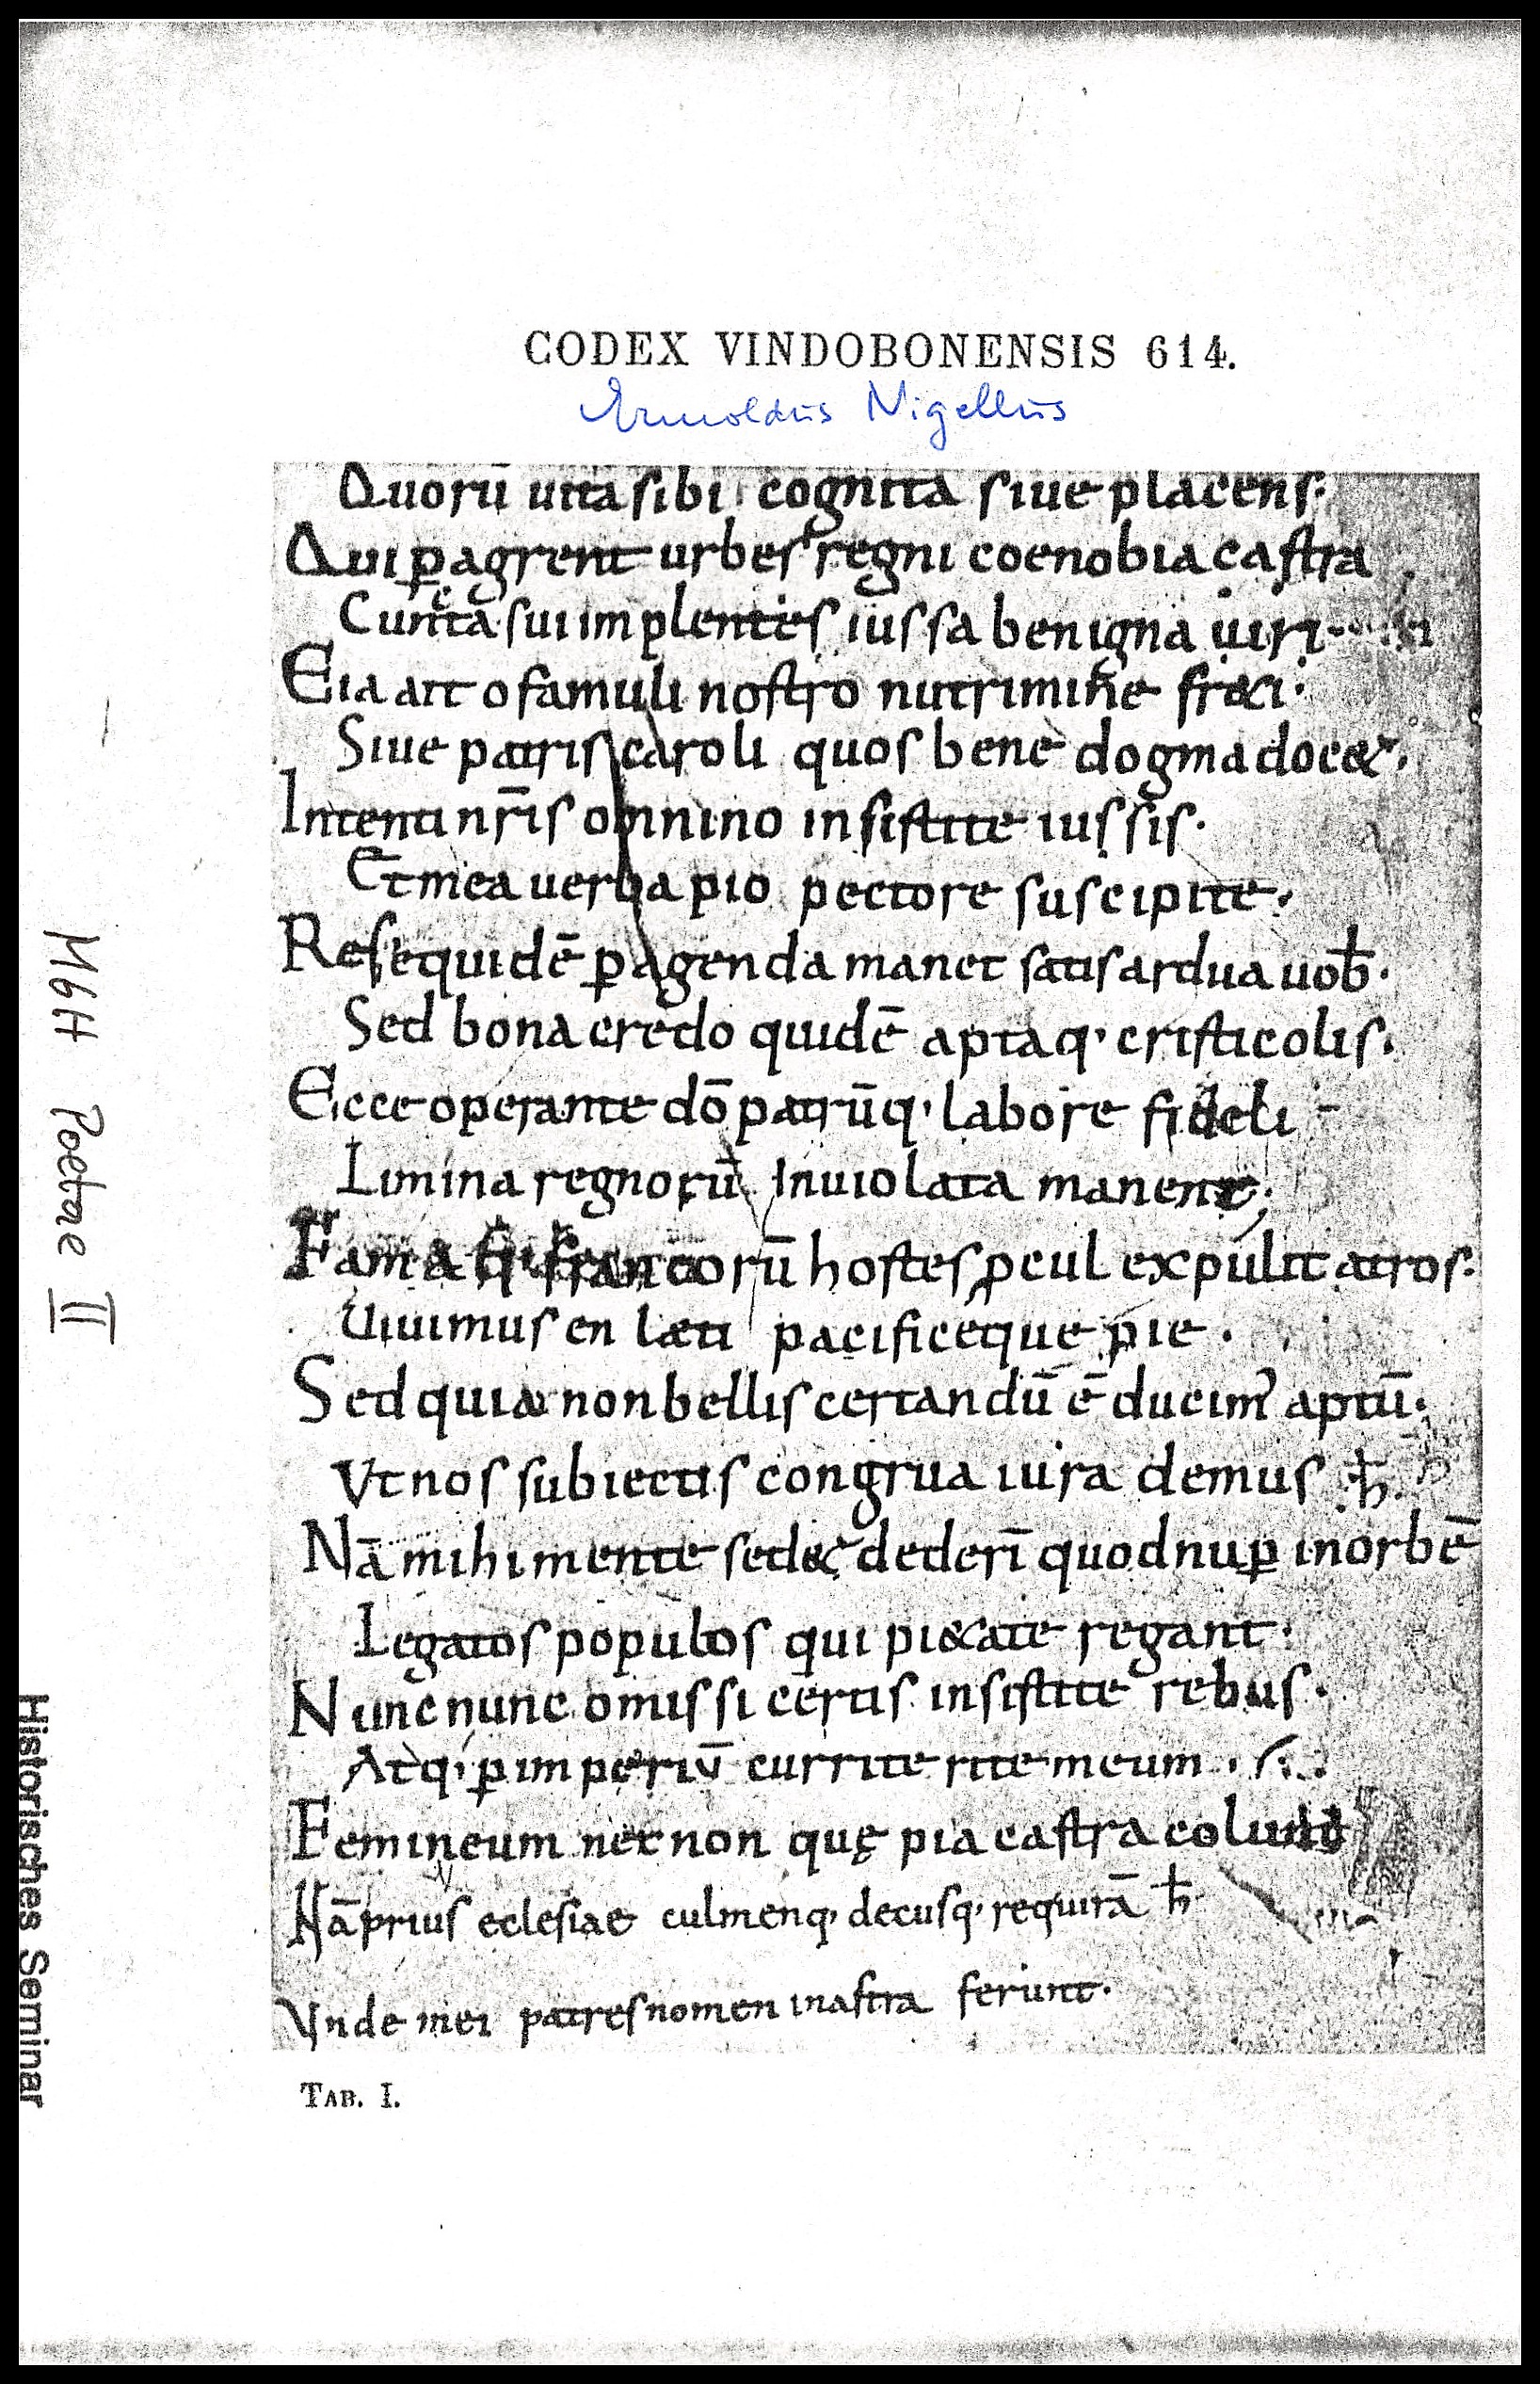 CODEX VINDOBONENSIS 614.
Ermoldus Nigellus
Quorū uita sibi cognita siue placens.
Qui p̲agrent urbes regni coenobia castra
Cuncta sui implentes iussa benigna uiri
Eia ait o famuli nostro nutrimin̄e freti.
Siue patris caroli quos bene dogma doc&.
Intenti nr̄is omnino insistite iussis.
Et mea uerba pio pectore suscipite.
Res equidē p̲agenda manet satis ardua uob̄.
Sed bona credo quidē aptaq, cristicolis.
Ecce operante dō patrūq, labore fideli
Limina regnorū inuiolata manent;
Fama francorū hostes ꝓcul expulit atros.
Uiuimus en læti pacificeque pie.
Sed quia non bellis certandū ē ducim᾿ aptū.
Vt nos subiectis congrua iura demus ħ.
Nā mihi mente sed& dederī quod nup̲ in orbē
Legatos populos qui pi&ate regant.
Nunc nunc o missi certis insistite rebus.
Atq, p̲ imperiū currite rite meum.
Femineum nec non quę pia castra
Nā prius eclesiae culmenq, decusq, requirā ħ
Vnde mei patres nomen in astra feriunt.
TAB. I.
MGH Poetae II
Historisches Seminar